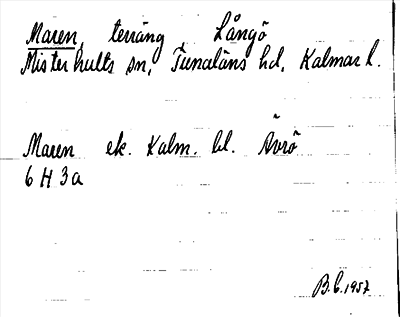 Maren, terräng Långö
Misterhults sn, Tunaläns hd, Kalmar l.
Maren ek. Kalm. bl. Ävrö
6 H 3a
B.C. 1957